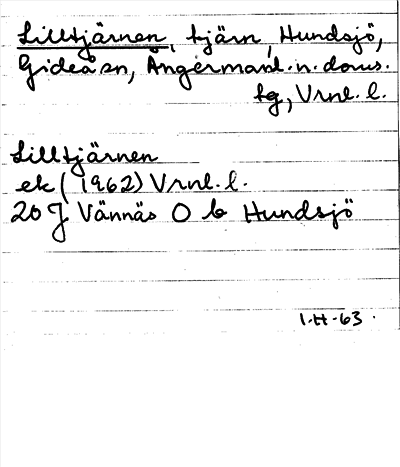 Lilltjärnen, tjärn, Hundsjö,
Gideå sn, Ångermanl. n. doms.
tg, Vrnl. l.
Lilltjärnen
ek (1962) Vrnl. l.
20 J Vännäs O b Hundsjö
1-H-63.